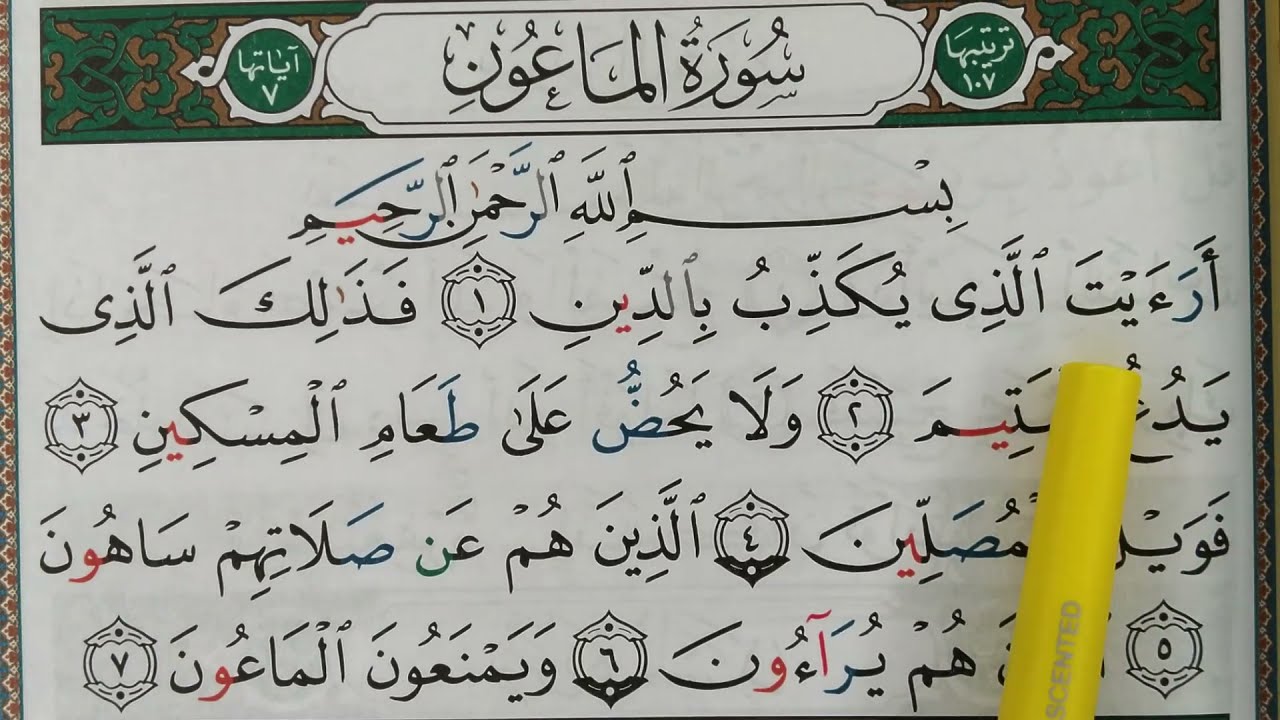 ترتيبها ١٠٧
سُورَةُ الْمَاعُونِ
آيَاتها ٧
بِسْمِ ٱللَّهِ ٱلرَّحْمَٰنِ ٱلرَّحِيمِ
أَرَءَيْتَ ٱلَّذِى يُكَذِّبُ بِٱلدِّينِ ١ فَذَٰلِكَ ٱلَّذِى
يَدُعُّ ٱلْيَتِيمَ ٢ وَلَا يَحُضُّ عَلَىٰ طَعَامِ ٱلْمِسْكِينِ ٣
فَوَيْلٌ لِّلْمُصَلِّينَ ٤ ٱلَّذِينَ هُمْ عَن صَلَاتِهِمْ سَاهُونَ
٥ ٱلَّذِينَ هُمْ يُرَآءُونَ ٦ وَيَمْنَعُونَ ٱلْمَاعُونَ ٧
SCENTED